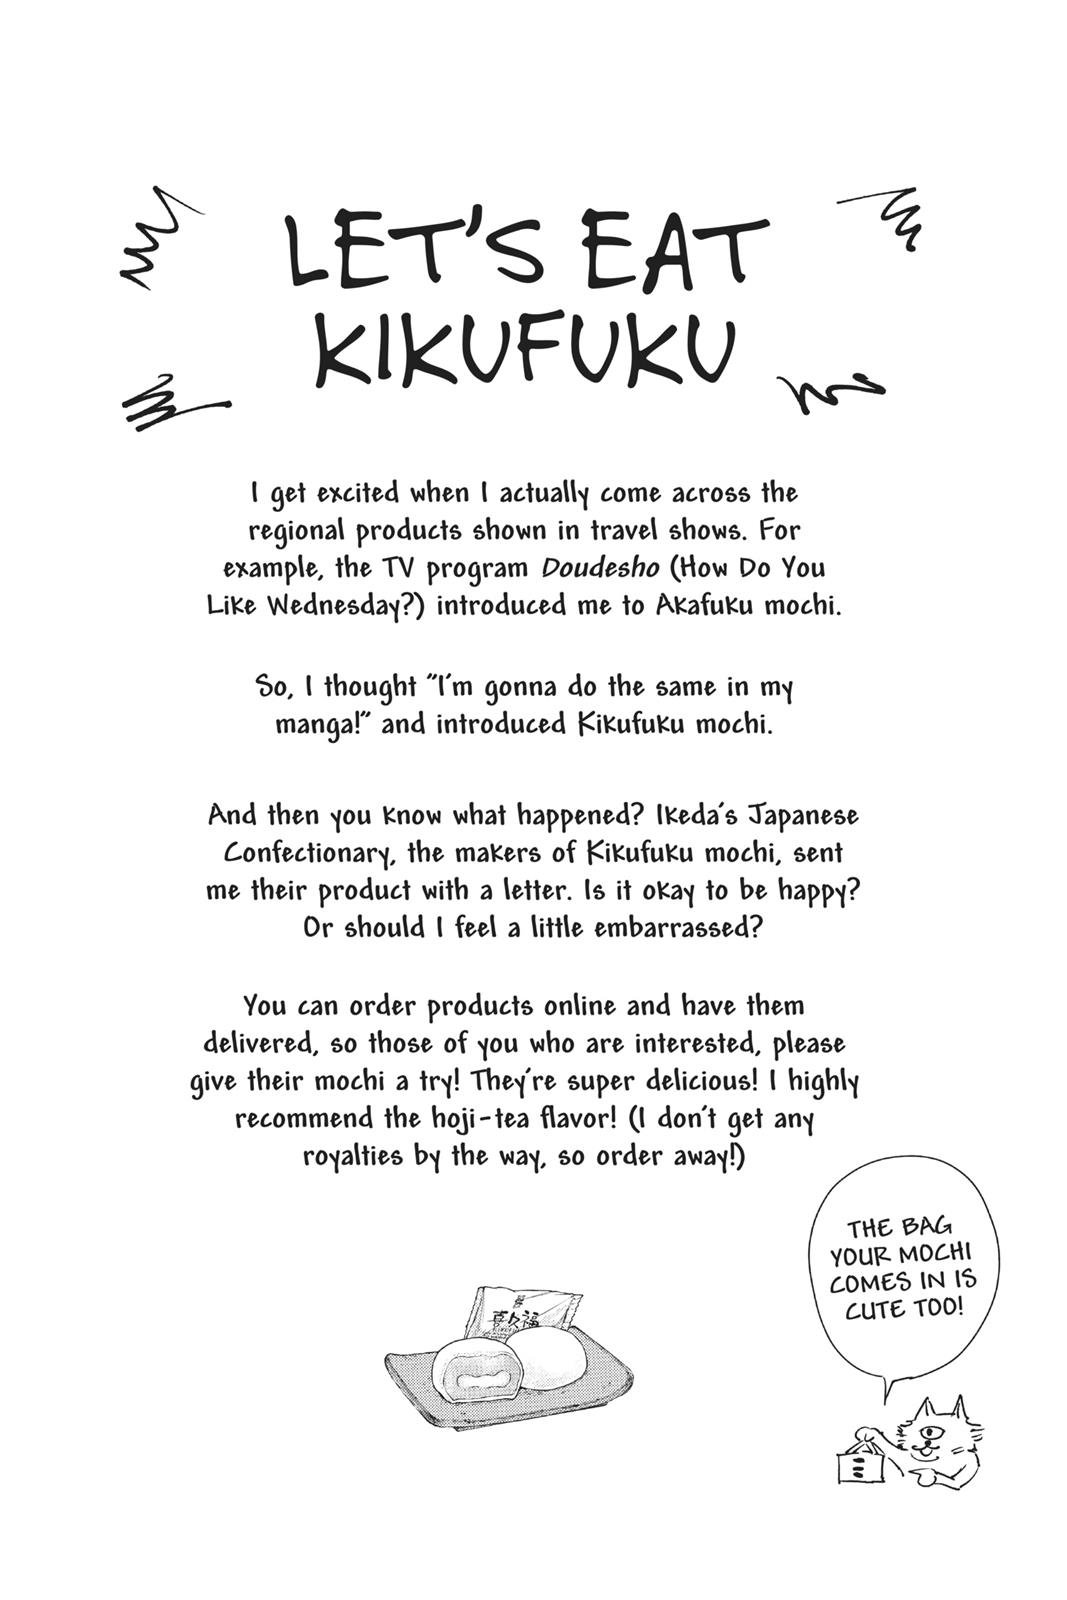 LET'S EAT
KIKUFUKU
I get excited when I actually come across the
regional products shown in travel shows. For
example, the TV program Doudesho (How Do You
Like Wednesday?) introduced me to Akafuku mochi.
So, I thought "I'm gonna do the same in my
manga!" and introduced Kikufuku mochi.
And then you know what happened? Ikeda's Japanese
Confectionary, the makers of Kikufuku mochi, sent
me their product with a letter. Is it okay to be happy?
Or should I feel a little embarrassed?
You can order products online and have them
delivered, so those of you who are interested, please
give their mochi a try! They're super delicious! I highly
recommend the hoji-tea flavor! (I don't get any
royalties by the way, so order away!)
THE BAG
YOUR MOCHI
COMES IN IS
CUTE TOO!
喜久福